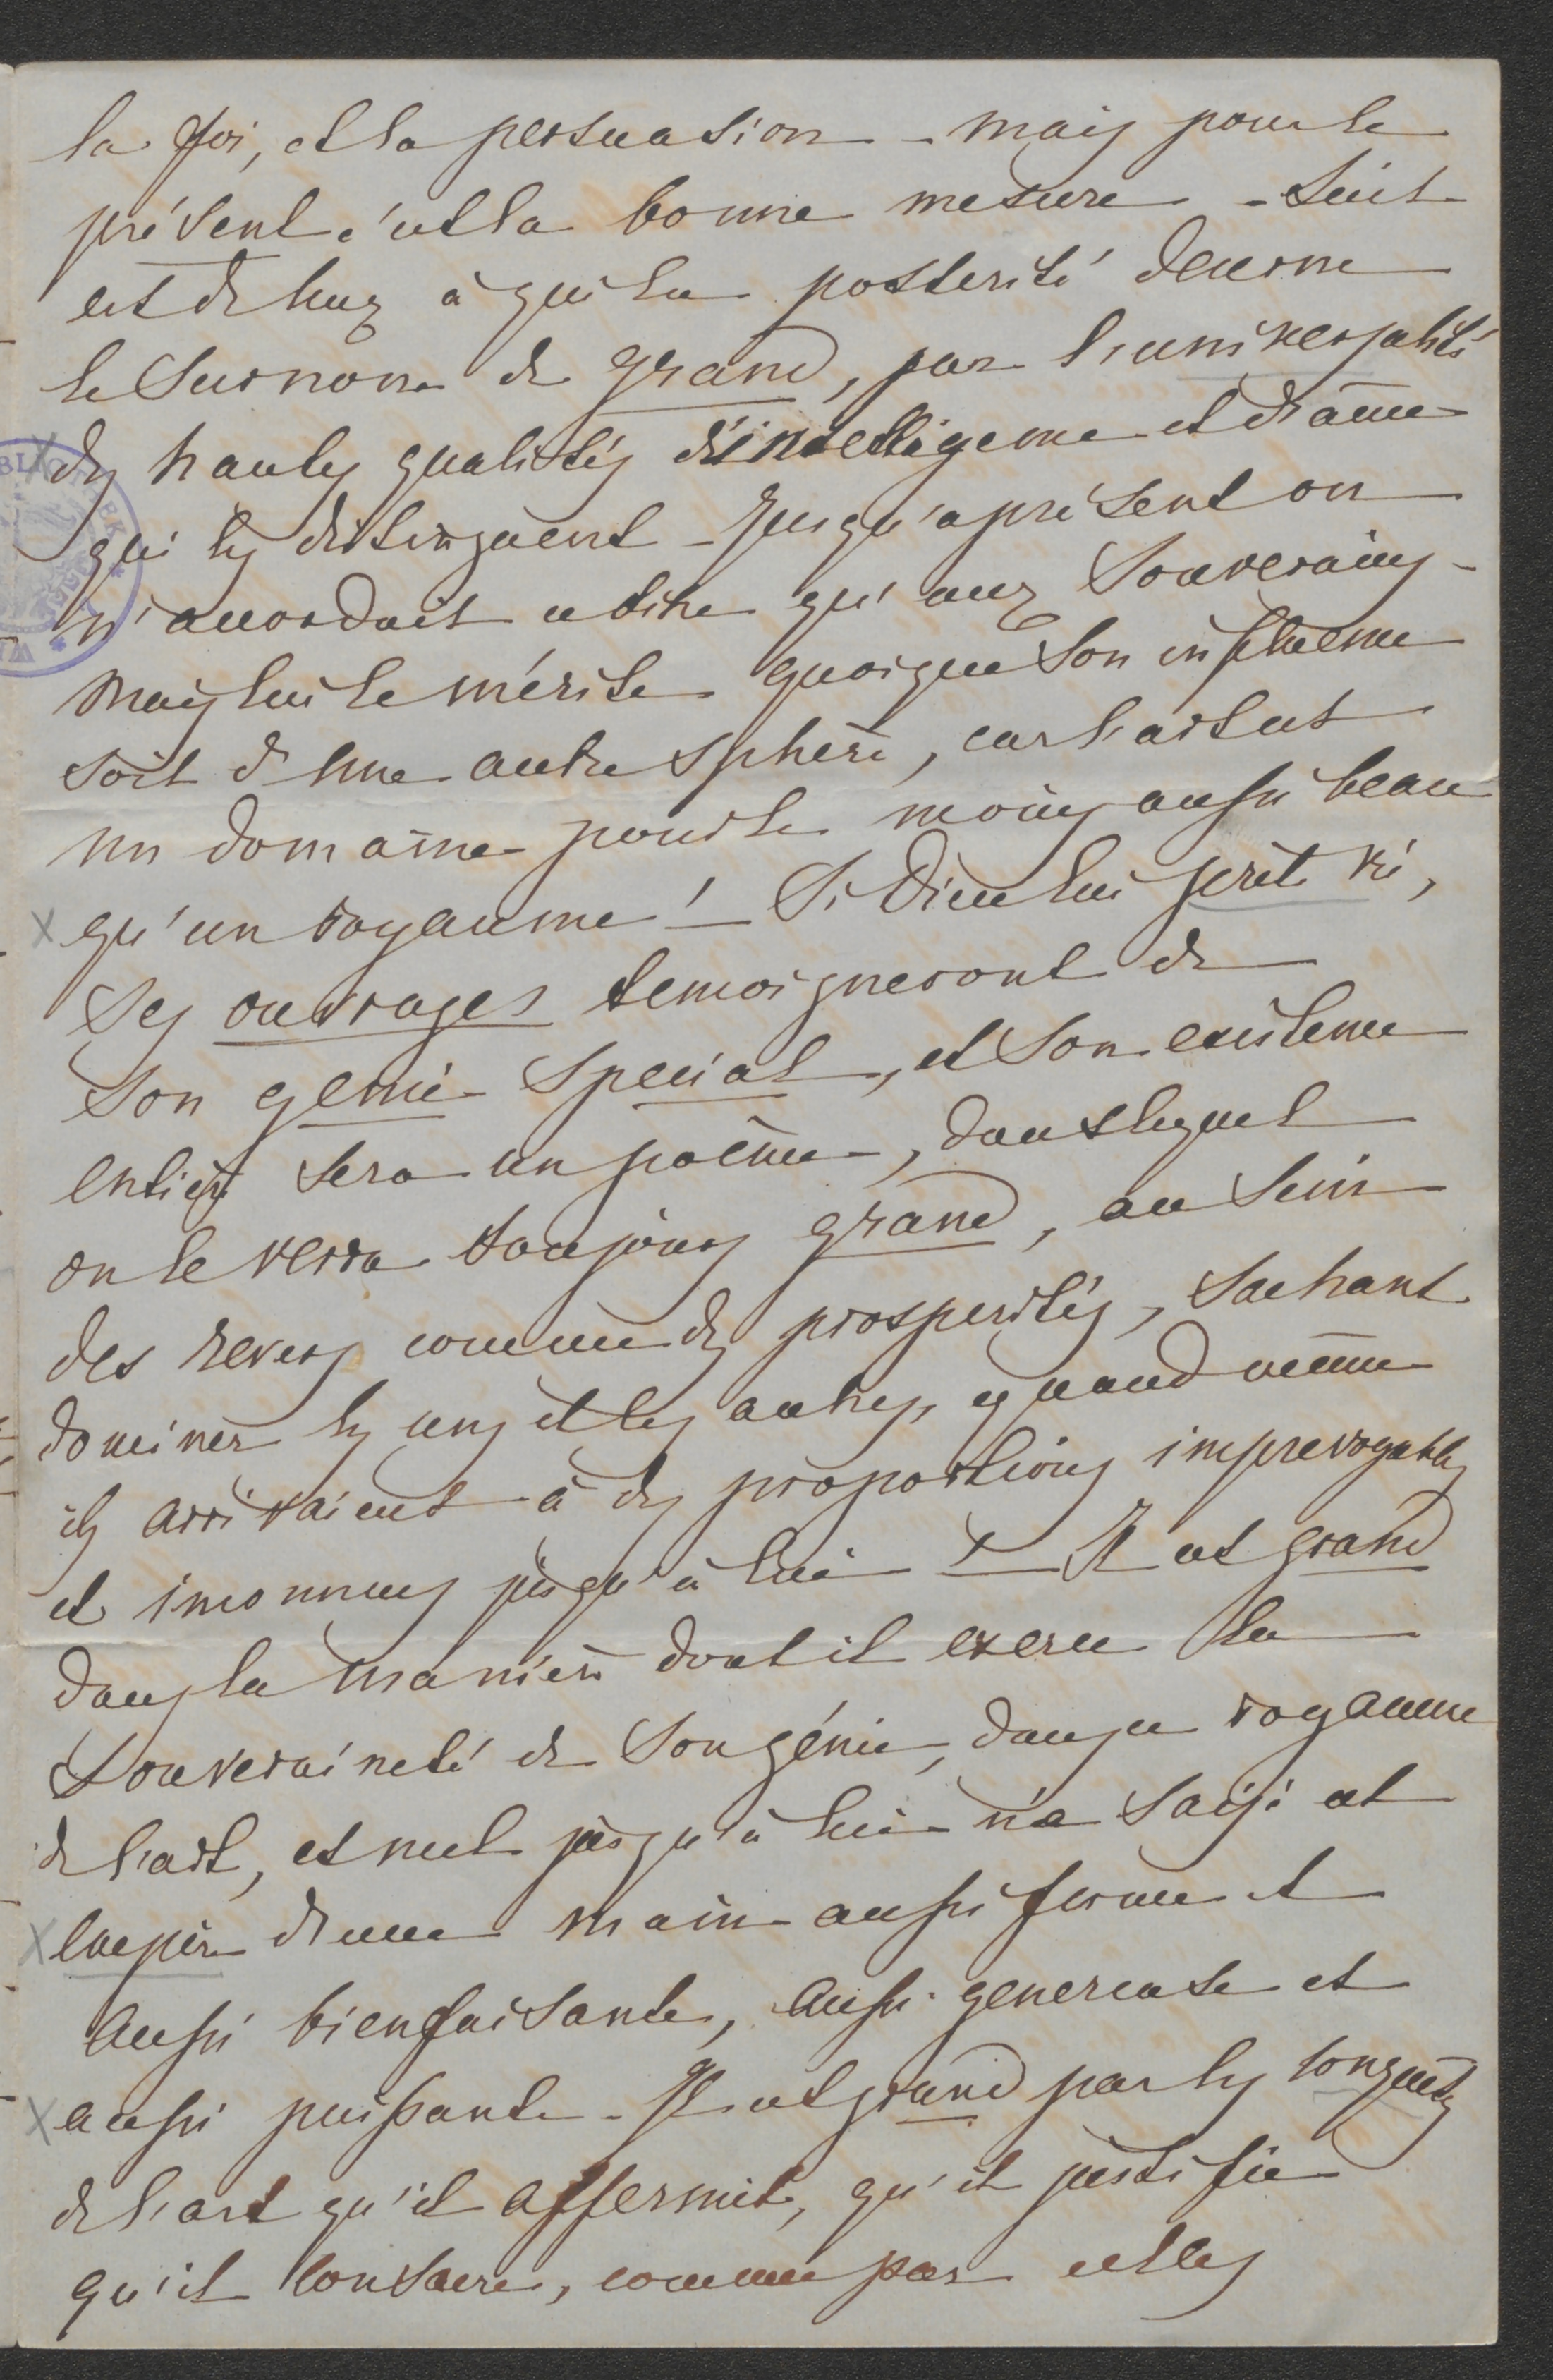 la foi, et la persuasion - mais pour le
présent c'est la bonne mesure - Liszt
est de ceux à qui la posterité decerne
le Surnom de grand, par l'universalité
des hautes qualités d'intelligence et d'âme
qui les distinguent - Jusqu'aprésent on
n'accordait ce titre qu'aux Souverains -
mais lui le mérite quoique Son influence
soit d'une autre sphère, car l'art est
un domaine pour le moins aussi beau
qu'un royaume! - Si Dieu lui prête vie,
Ses ouvrages temoigneront de
son genie Special, et Son existence
entière sera un poême, dans lequel
on le verra toujours grand, au Sein
des revers comme des prosperités, Sachant
dominer les uns et les autres, quand même
ils arrivaient à des proportions imprevoyables
et inconnues jusqu'à lui - Il est grand
dans la manière dont il exerce la
Souveraineté de Son génie, dans ce royaume
de l'art, et nul jusqu'à lui n'a Saisi cet
empire d'une main aussi ferme et
aussi bienfaisante, aussi genereuse et
aussi puissante - Il est grand par les conquêtes
de l'art qu'il affermit, qu'il justifie
qu'il consacre, comme par celles